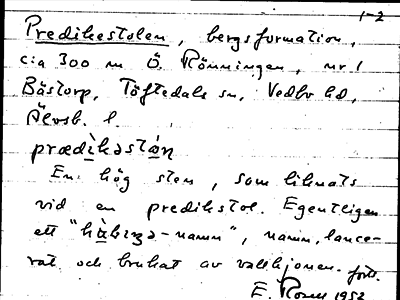 1-2
Predikestolen, bergsformation,
cia 300 m Ö. Rönningen, nr 1
Båstorp, Töftedals sn, Vedbo hd,
Älvsb. l.
prædìkəstɑ́n
En hög sten, som liknats
vid en predikstol. Egentligen
ett "namn", namn, lance-
rat och brukat av vallhjonen. forts.
E. Rosell 1952